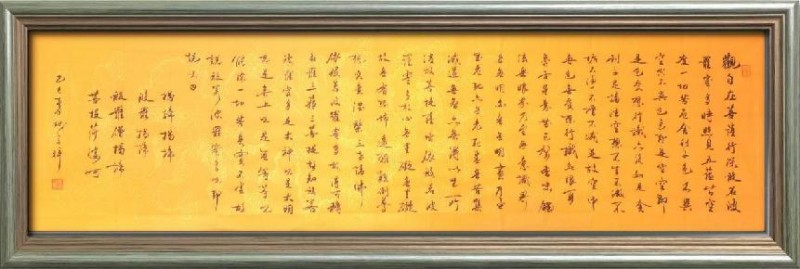 觀自在菩薩行深般若波
羅蜜多時照見五蘊皆空
度一切苦厄舍利子色不異
空空不異色色即是空空即
是色受想行識亦復如是舍
利子是諸法空相不生不滅不
垢不淨不增不減是故空中
無色無受想行識無眼耳
鼻舌身意無色聲香味觸
法無眼界乃至無意識界
無無明亦無無明盡乃至
無老死亦無老死盡無苦集
滅道無智亦無得以無所
得故菩提薩埵依般若波
羅蜜多故心無罣礙無罣礙
故無有恐怖遠離顛倒夢
想究竟涅槃三世諸佛
依般若波羅蜜多故得阿耨
多羅三藐三菩提故知般若
波羅蜜多是大神咒是大明
咒是無上咒是無等等咒
能除一切苦真實不虛故
說般若波羅蜜多咒即
說咒曰
揭諦揭諦
般羅揭諦
般羅僧揭諦
菩提薩婆訶